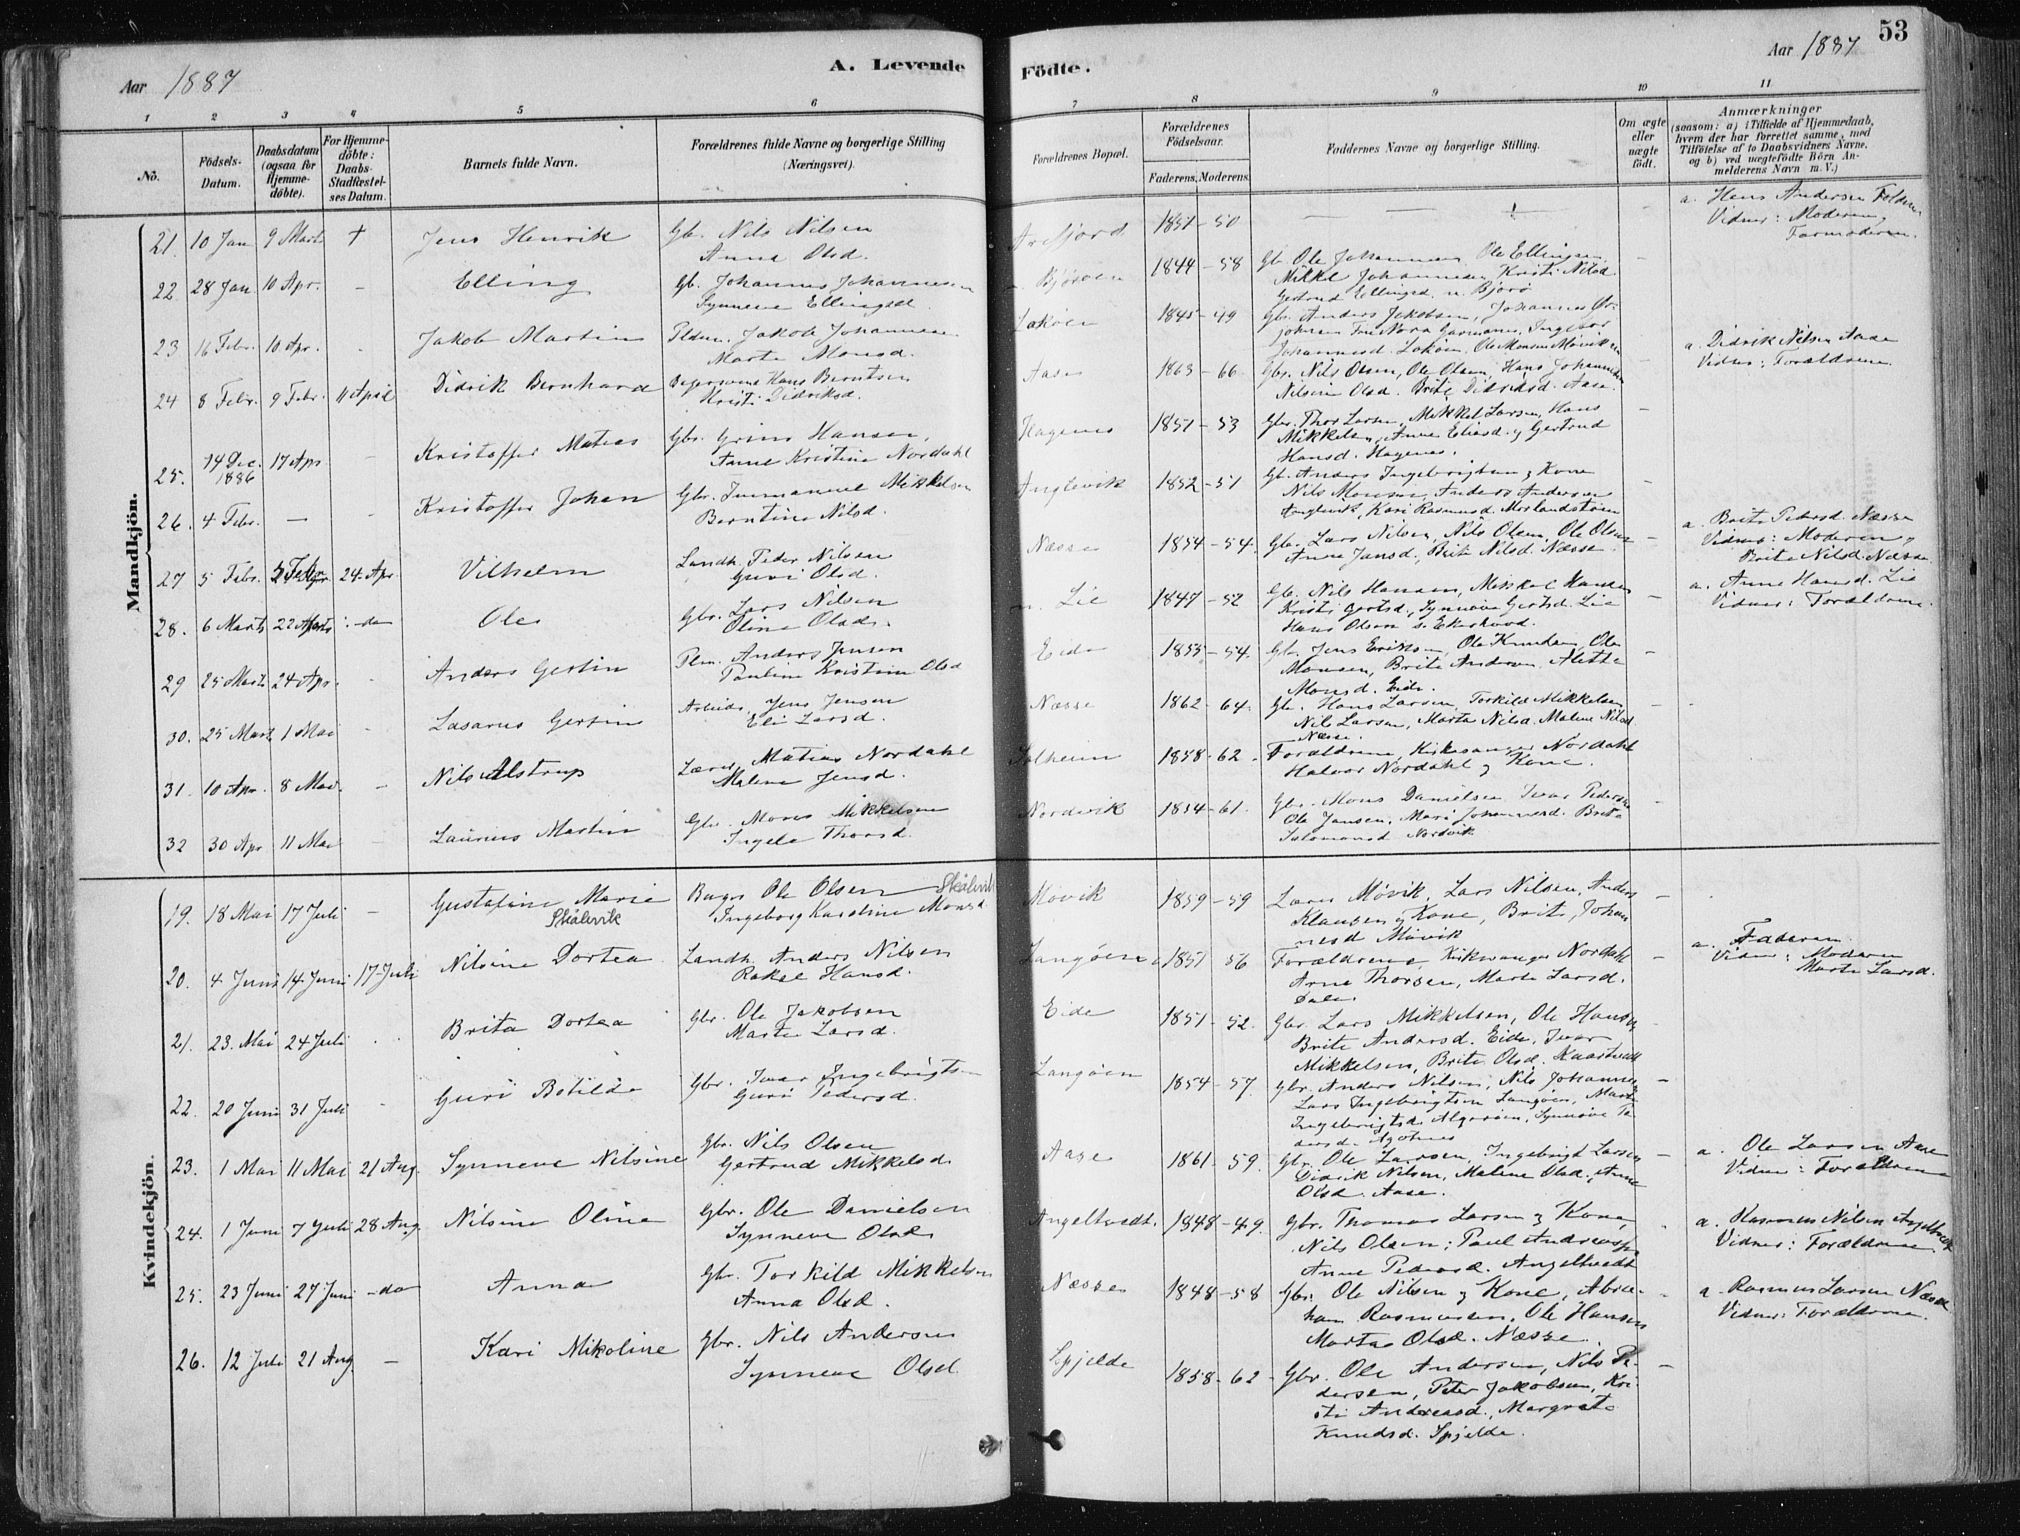 Aar 1887
A. Levende
Födte.
Aar 1887
53
1 2 3 4 5 6
7 8 9 10 11
No.
Födsels-Datum.
Daabsdatum (ogsaa for Hjemme-döbte).
For Hjemme-döbte: Daabs-Stadfæstel-ses Datum.
Barnets fulde Navn.
Forældrenes fulde Navne og borgerlige Stilling (Næringsvei).
Forældrenes Bopæl.
Forældrenes Födselsaar.
Faderens. Moderens.
Faddernes Navne og borgerlige Stilling.
Om ægte eller uægte födt.
Anmærkninger
(saasom: a) i Tilfælde af Hjemmedaab, hvem der har forrettet samme, med Tilföielse af to Daabsvidners Navne, og b) ved uægtefödte Börn An-melderens Navn m. V.)
Mandkjön.
21. 10 Jan 9 Mart + Jens Henrik Gbr. Nils Nilsen
Anna Olsd.
1851-50
a. Hans Andersen
Vidner: Moderen,
Farmoderen.
22 28 Jan. 10 Apr. - Elling Gb. Johannes Johannesen
Synneve Ellingsd.
Bjøroen 1844-58 Gb. Ole Johannesen, Ole Ellingsen
Mikkel Johannesen, Kristi Nilsd
Gertrud Ellingsd. n. Bjorø
23 16 Febr. 10 Apr. - Jakob Martin Jakob Johannesen
Marta Monsd.
1845-49 Gbr. Anders Jakobsen, Johannes
24 8 Febr. 9 Febr. 11 April Didrik Bernhard Hans Berntsen
Kristi Didriksd.
Aase 1863-66 Gbr. Nils Olsen, Ole Olsen, Hans Johannesen
Nilsine Olsd. Brite Didriksd. Aase.
a. Didrik Nilsen Aase
Vidner: Forældrene
25. 14 Dec. 1886 17 Apr - Kristoffer Matias Gbr. Hansen,
Anne Kristine Nordahl
Hagenes 1851-53 Gbr. Thor Larsen, Mikkel Larsen, Hans
Mikkelsen, Anne Eliasd. og Gertrud
Hansd. Hagenes.
26. 4 Febr. - Kristoffer Johan Gbr. Immanuel Mikkelsen
Berntine Nilsd.
Anglevik 1852-51 Gb. Anders Ingebrigtsen og Kone
Nils Monsen, Anders Andersen
Anglevik, Kari Rasmusd.
27 5 Febr. 24. Apr. Vilhelm Landh. Peder Nilsen
Guri Olsd.
Næsse 1854-54. Gbr. Lars Nilsen, Nils Olsen, Ole Olsen
Anne Jansd., Brite Nilsd. Næsse.
a. Brite Pedersd. Næsse
Vidner: Moderen,
Brite Nilsd. Næsse
28. 6 Marts 22 Marts -do Ole Gbr. Lars Nilsen
Oline Olsdr.
n. Lie 1847-52 Gb. Nils Hansen, Mikkel Hansen
Kristi Gertsd., Synnøve Gertsd. Lie
Hans Olsen
a. Anne Hansd. Lie
Vidner: Forældrene.
29 25 Marts 24 Apr. - Anders Gertin Plm. Anders Jensen
Pauline Kristine Olsd
Eide 1853-54. Gb. Jens Eriksen, Ole Knudsen, Ole
Monsen, Brite Andersen, Alette
Monsd. Eide.
30. 25 Mart 1 Mai - Lasarus Gertin Arbeider Jens Jensen
Eli Larsd.
Næsse 1862-64. Gbr. Hans Larsen, Torkild Mikkelsen
Nils Larsen, Marta Nilsd. Malene Nilsd
Næsse.
31. 10 Apr. 8 Mai. - Nils Alstrup Lærer Matias Nordahl
Malene Jensd.
Solheim 1858-62. Forældrene, Kirkesanger Nordahl
Halvor Nordahl og Kone.
32 30 Apr 11 Mai Laurus Martin Gbr. Mons Mikkelsen
Ingela Thorsd.
Nordvik 1854-61. Gbr. Mons Danielsen, Ivar Pedersen
Ole Jansen, Mari Johannesd. Brita
Salomonsd Nordvik
Kvindekjön.
19. 18 Mai 17 Juli - Gustafine Marie Skålevik Ole Olsen Skålevik
Ingeborg Karoline Monsd
Møvik 1859-59 Lars Møvik, Lars Nilsen, Anders
Klausen og Kone, Brite Johan
nesd Møvik
20. 4 Juni 14 Juni 17 Juli Nilsine Dortea Landh. Anders Nilsen
Rakel Hansd.
Langøen 1851 56 Forældrene, Kirkesanger Nordahl
Arne Thorsen, Marta Larsd.
a. Faderen
Vidner: Moderen
Marta Larsd.
21. 23. Mai 24 Juli Brita Dortea Gbr. Ole Jakobsen
Marta Larsd.
Eide 1851-52. Gbr. Lars Mikkelsen, Ole Hansen
Brite Andersd. Eide, Ivar
Mikkelsen, Brite Olsd. Kaartvedt
22. 20 Juni 31 Juli - Guri Botilde Gbr. Ivar Ingebrigts-
Guri Pedersd.
Langøen 1854-57. Gbr. Anders Nilsen, Nils Johannes
Lars Ingebrigtsen Langøen, Marta
Ingebrigtsd. Algerøen, Synnøve Pe
dersd.
23. 1 Mai 11 Mai 21 Aug. Synneve Nilsine Gbr. Nils Olsen
Gertrud Mikkelsd.
Aase 1861-59. Gbr. Ole Larsen, Ingebrigt Larsen
Didrik Nilsen, Malene Olsd., Anne
Olsd. Aase.
a. Ole Larsen Aase
Vidner: Forældrene
24. 1 Juni 7 Juli 28 Aug. Nilsine Oline Gbr. Ole Danielsen
Synneve Olsd.
Angeltvedt. 1848-49. Gbr. Thomas Larsen og Kone,
Nils Olsen; Paul Andreassen
Anne Pedersd. Angeltvedt
a. Rasmus Nilsen Angeltvedt
Vidner: Forældrene.
25. 23 Juni 27 Juni -do Anna Gbr. Torkild Mikkelsen
Anna Olsd.
Næsse 1848-58 Gbr. Ole Nilsen og Kone, Abra-
ham Rasmussen, Ole Hansen
Marta Olsd. Næsse.
a. Rasmus Larsen Næsse
Vidner: Forældrene.
26. 12 Juli 21 Aug. - Kari Mikoline Gbr. Nils Andersen
Synneve Olsd.
Spjelde 1858-62 - Gbr. Ole Andersen, Nils Pe-
dersen, Peter Jakobsen, Kri-
sti Andreasd., Margrete
Knudsd. Spjelde.